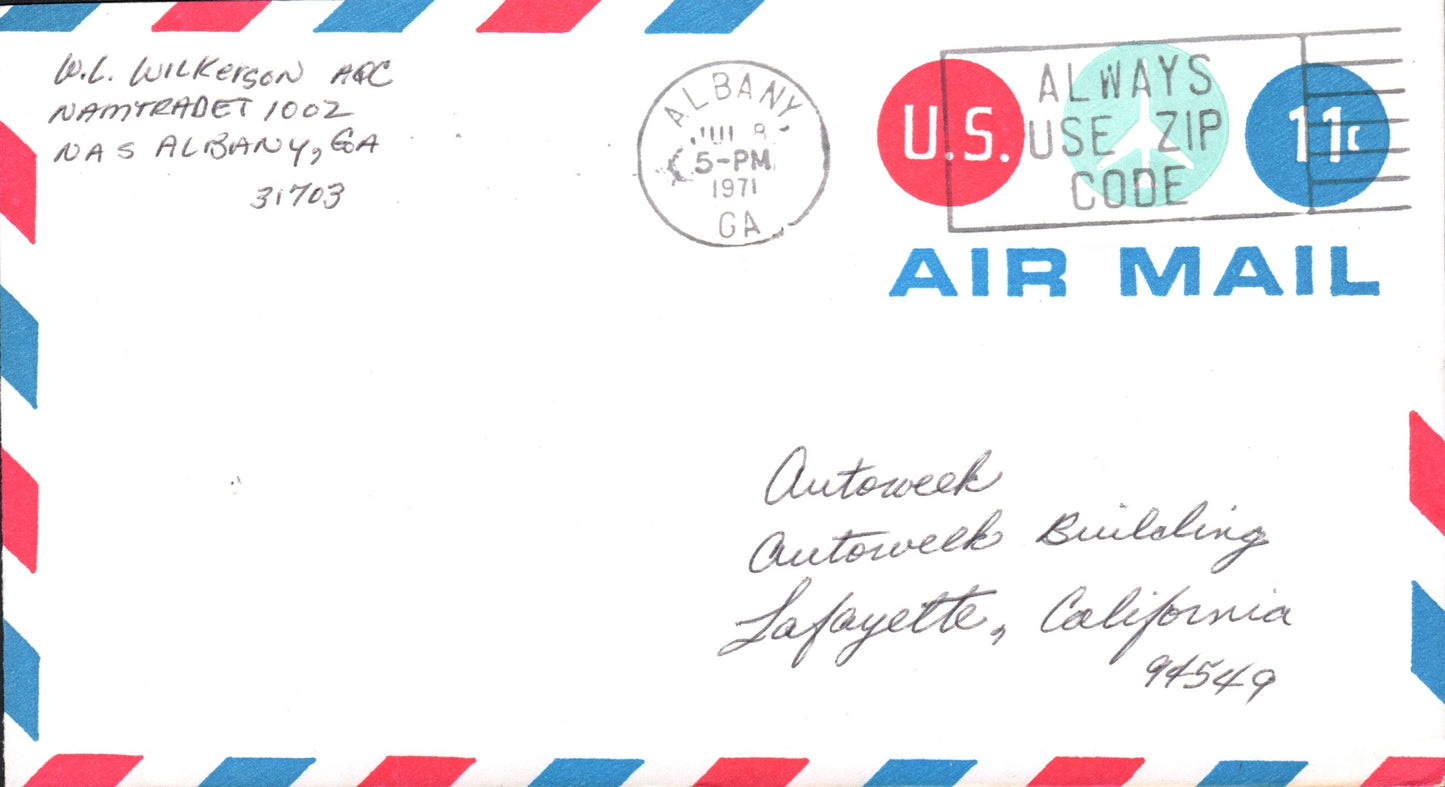 W.L. WILKERSON AQC
NAMTRADET 1002
NAS ALBANY, GA
31703
ALBANY,
8
5-PM
1971
GA
U.S.
ALWAYS
USE ZIP
CODE
11c
AIR MAIL
Autoweek
Autoweek Building
Lafayette, California
94549